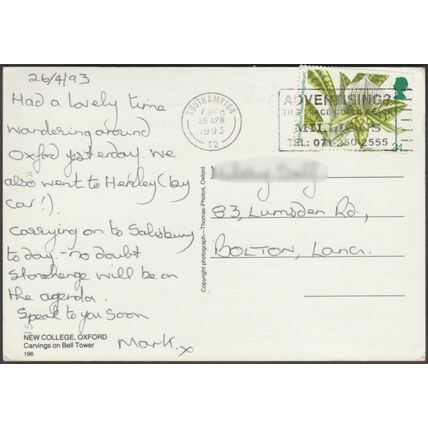 26/4/93
Had a lovely time
wandering around
Oxford yesterday. We
also went to Henley (by
car!).
Carrying on to Salisbury
today - no doubt
Stonehenge will be on
the agenda.
Speak to you soon
Mark. x
NEW COLLEGE, OXFORD
Carvings on Bell Tower
196
Copyright photograph—Thomas-Photos, Oxford
SOUTHAMPTON
26 APR
1993
S2
ADVERTISING?
THIS SPACE COULD REACH
MILLIONS
TEL: 071-250 2555
24
83, Lumsden Rd.,
BOLTON, Lancs.